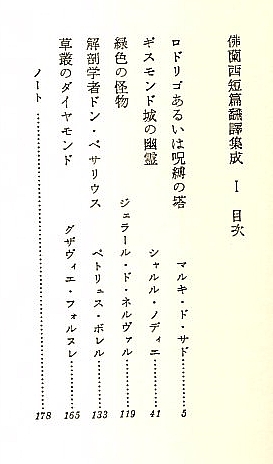 佛蘭西短篇飜譯集成 Ⅰ 目次
ロドリゴあるいは呪縛の塔 マルキ・ド・サド 5
ギスモンド城の幽霊 シャルル・ノディエ 41
緑色の怪物 ジェラール・ド・ネルヴァル 119
解剖学者ドン・ベサリウス ペトリュス・ボレル 133
草叢のダイヤモンド グザヴィエ・フォルヌレ 165
ノート 178